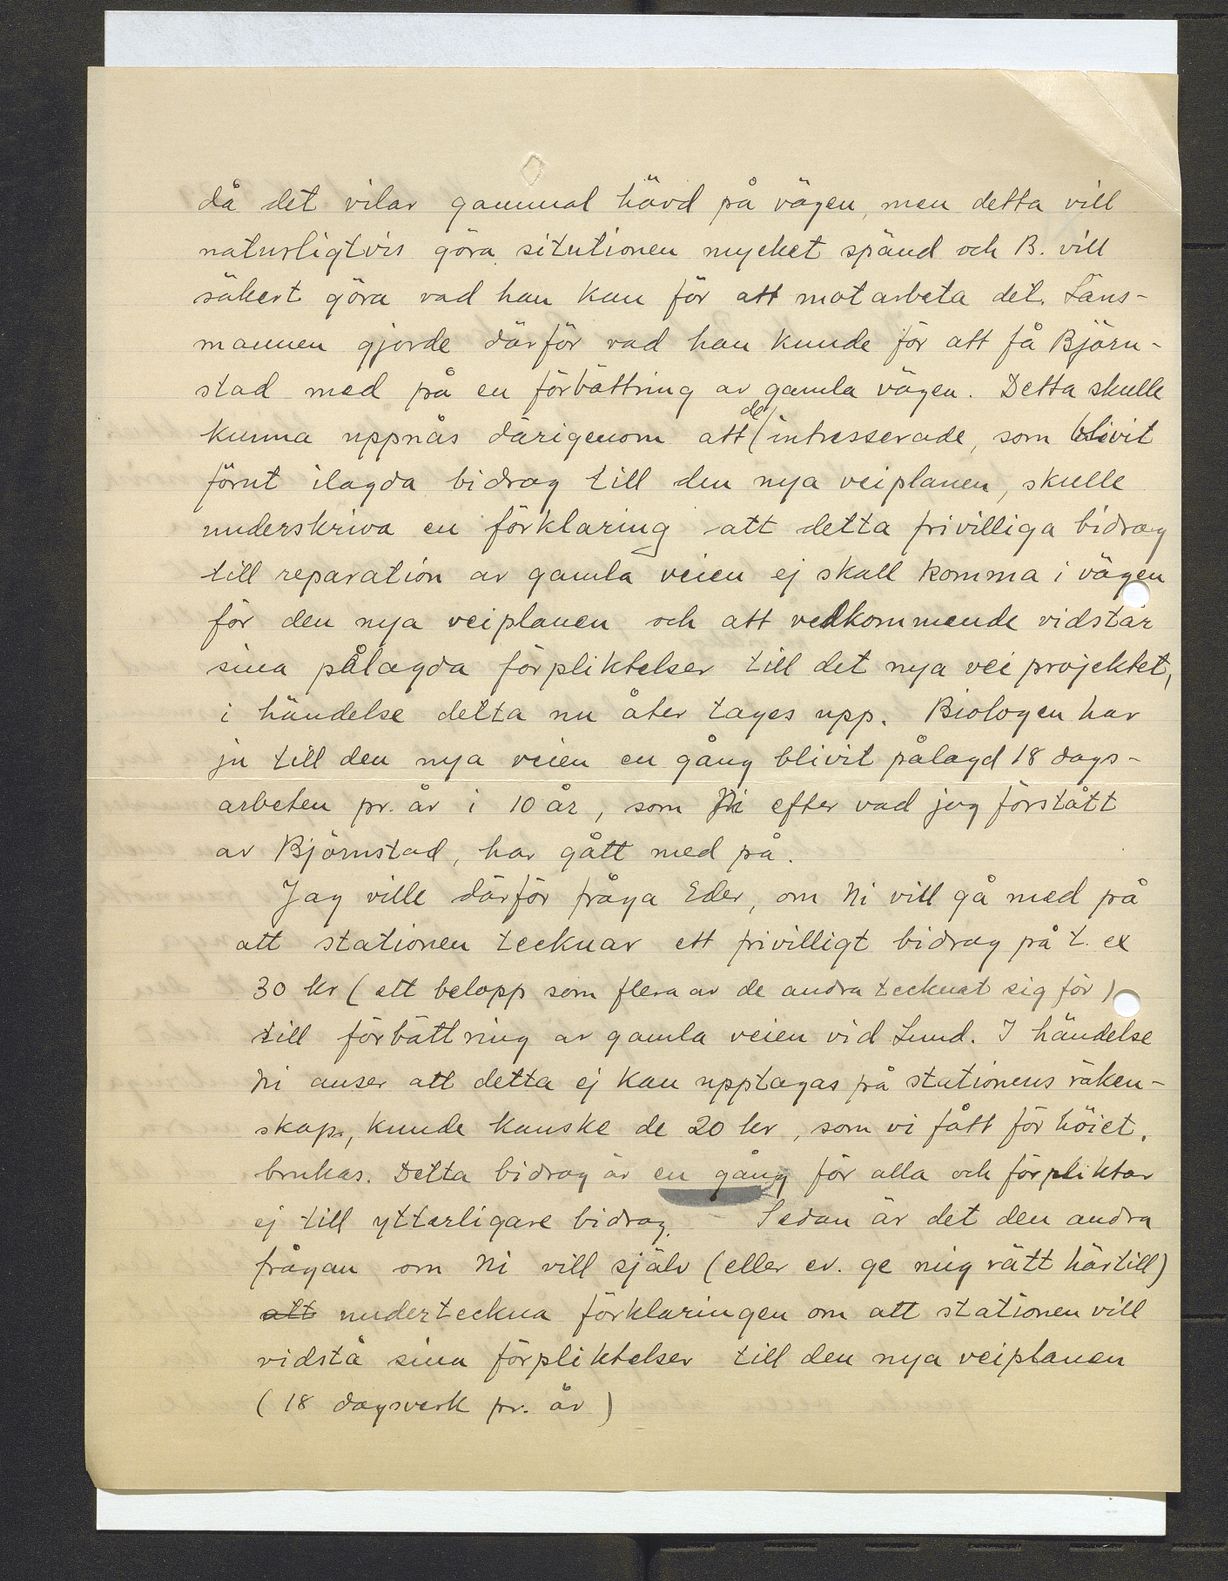 då det vilar gammal hävd på vägen, men detta vill
naturligtvis göra situtionen mycket spänd och B. vill
säkert göra vad han kan för att motarbeta det. Läns-
mannen gjorde därför vad han kunde för att få Björn-
stad med på en förbättring av gamla vägen. Detta skulle
kunna uppnås därigenom att de intresserade, som blivit
förut ilagda bidrag till den nya veiplanen, skulle
underskriva en förklaring att detta frivilliga bidrag
till reparation av gamla veien ej skall komma i vägen
för den nya veiplanen och att vedkommende vidstår
sina pålagda förpliktelser till det nya vei projektet,
i händelse detta nu åter tages upp. Biologen har
ju till den nya veien en gång blivit pålagd 18 dags-
arbeten pr. år i 10 år, som Ni efter vad jag förstått
av Björnstad, har gått med på.
Jag ville därför fråga Eder, om Ni vill gå med på
att stationen tecknar ett frivilligt bidrag på t. ex
30 kr (ett belopp som flera av de andra tecknat sig för)
till förbättring av gamla veien vid Lund. I händelse
Ni anser att detta ej kan upptagas på stationens räken-
skap, kunde kanske de 20 kr, som vi fått för höiet,
brukas. Detta bidrag är en gång för alla och förpliktar
ej till ytterligare bidrag. – Sedan är det den andra
frågan om Ni vill själv (eller ev. ge mig rätt härtill)
att underteckna förklaringen om att stationen vill
vidstå sina förpliktelser till den nya veiplanen
(18 dagsverk pr. år)